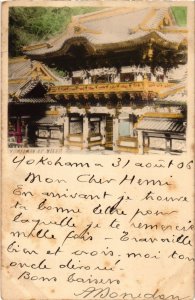 Yokohama 31 août 06
Mon Cher Henri
En arrivant je trouve
ta bonne lettre pour
laquelle je te remercie
mille fois - Travaille
bien et crois moi ton
oncle dévoué.
Bons baisers